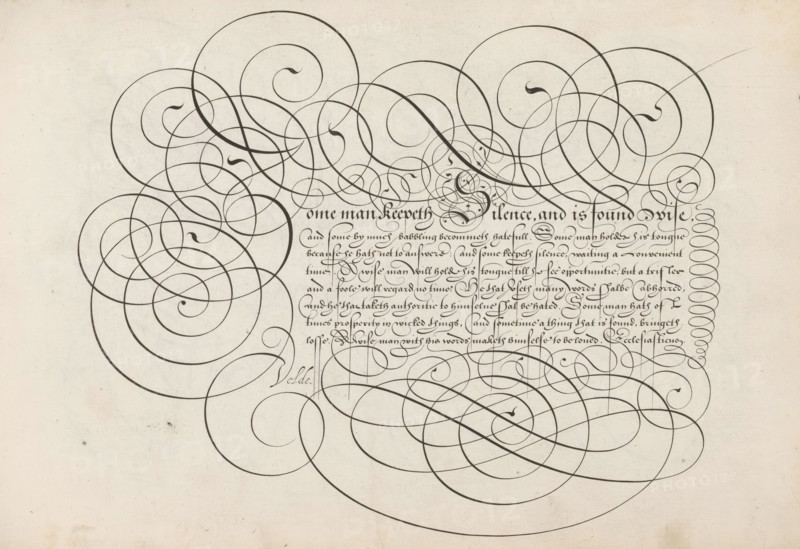 Some man keepeth Silence, and is found wise,
and some by much babbling becommeth hatefull. Some man holdeth his tongue
because he hath not to answere, and some keepeth silence, waiting a convenient
time. A wise man will hold his tongue till he see opportunitie, but a trifler
and a foole will regard no time. He that useth many words shalbe abhorred,
and he that taketh authoritie to himselve shal be hated. Some man hath oft
times prosperity in wicked things, and sometime a thing that is found, bringeth
losse. A wise man with his words maketh himselfe to be loved. Ecclesiasticus
Velde.